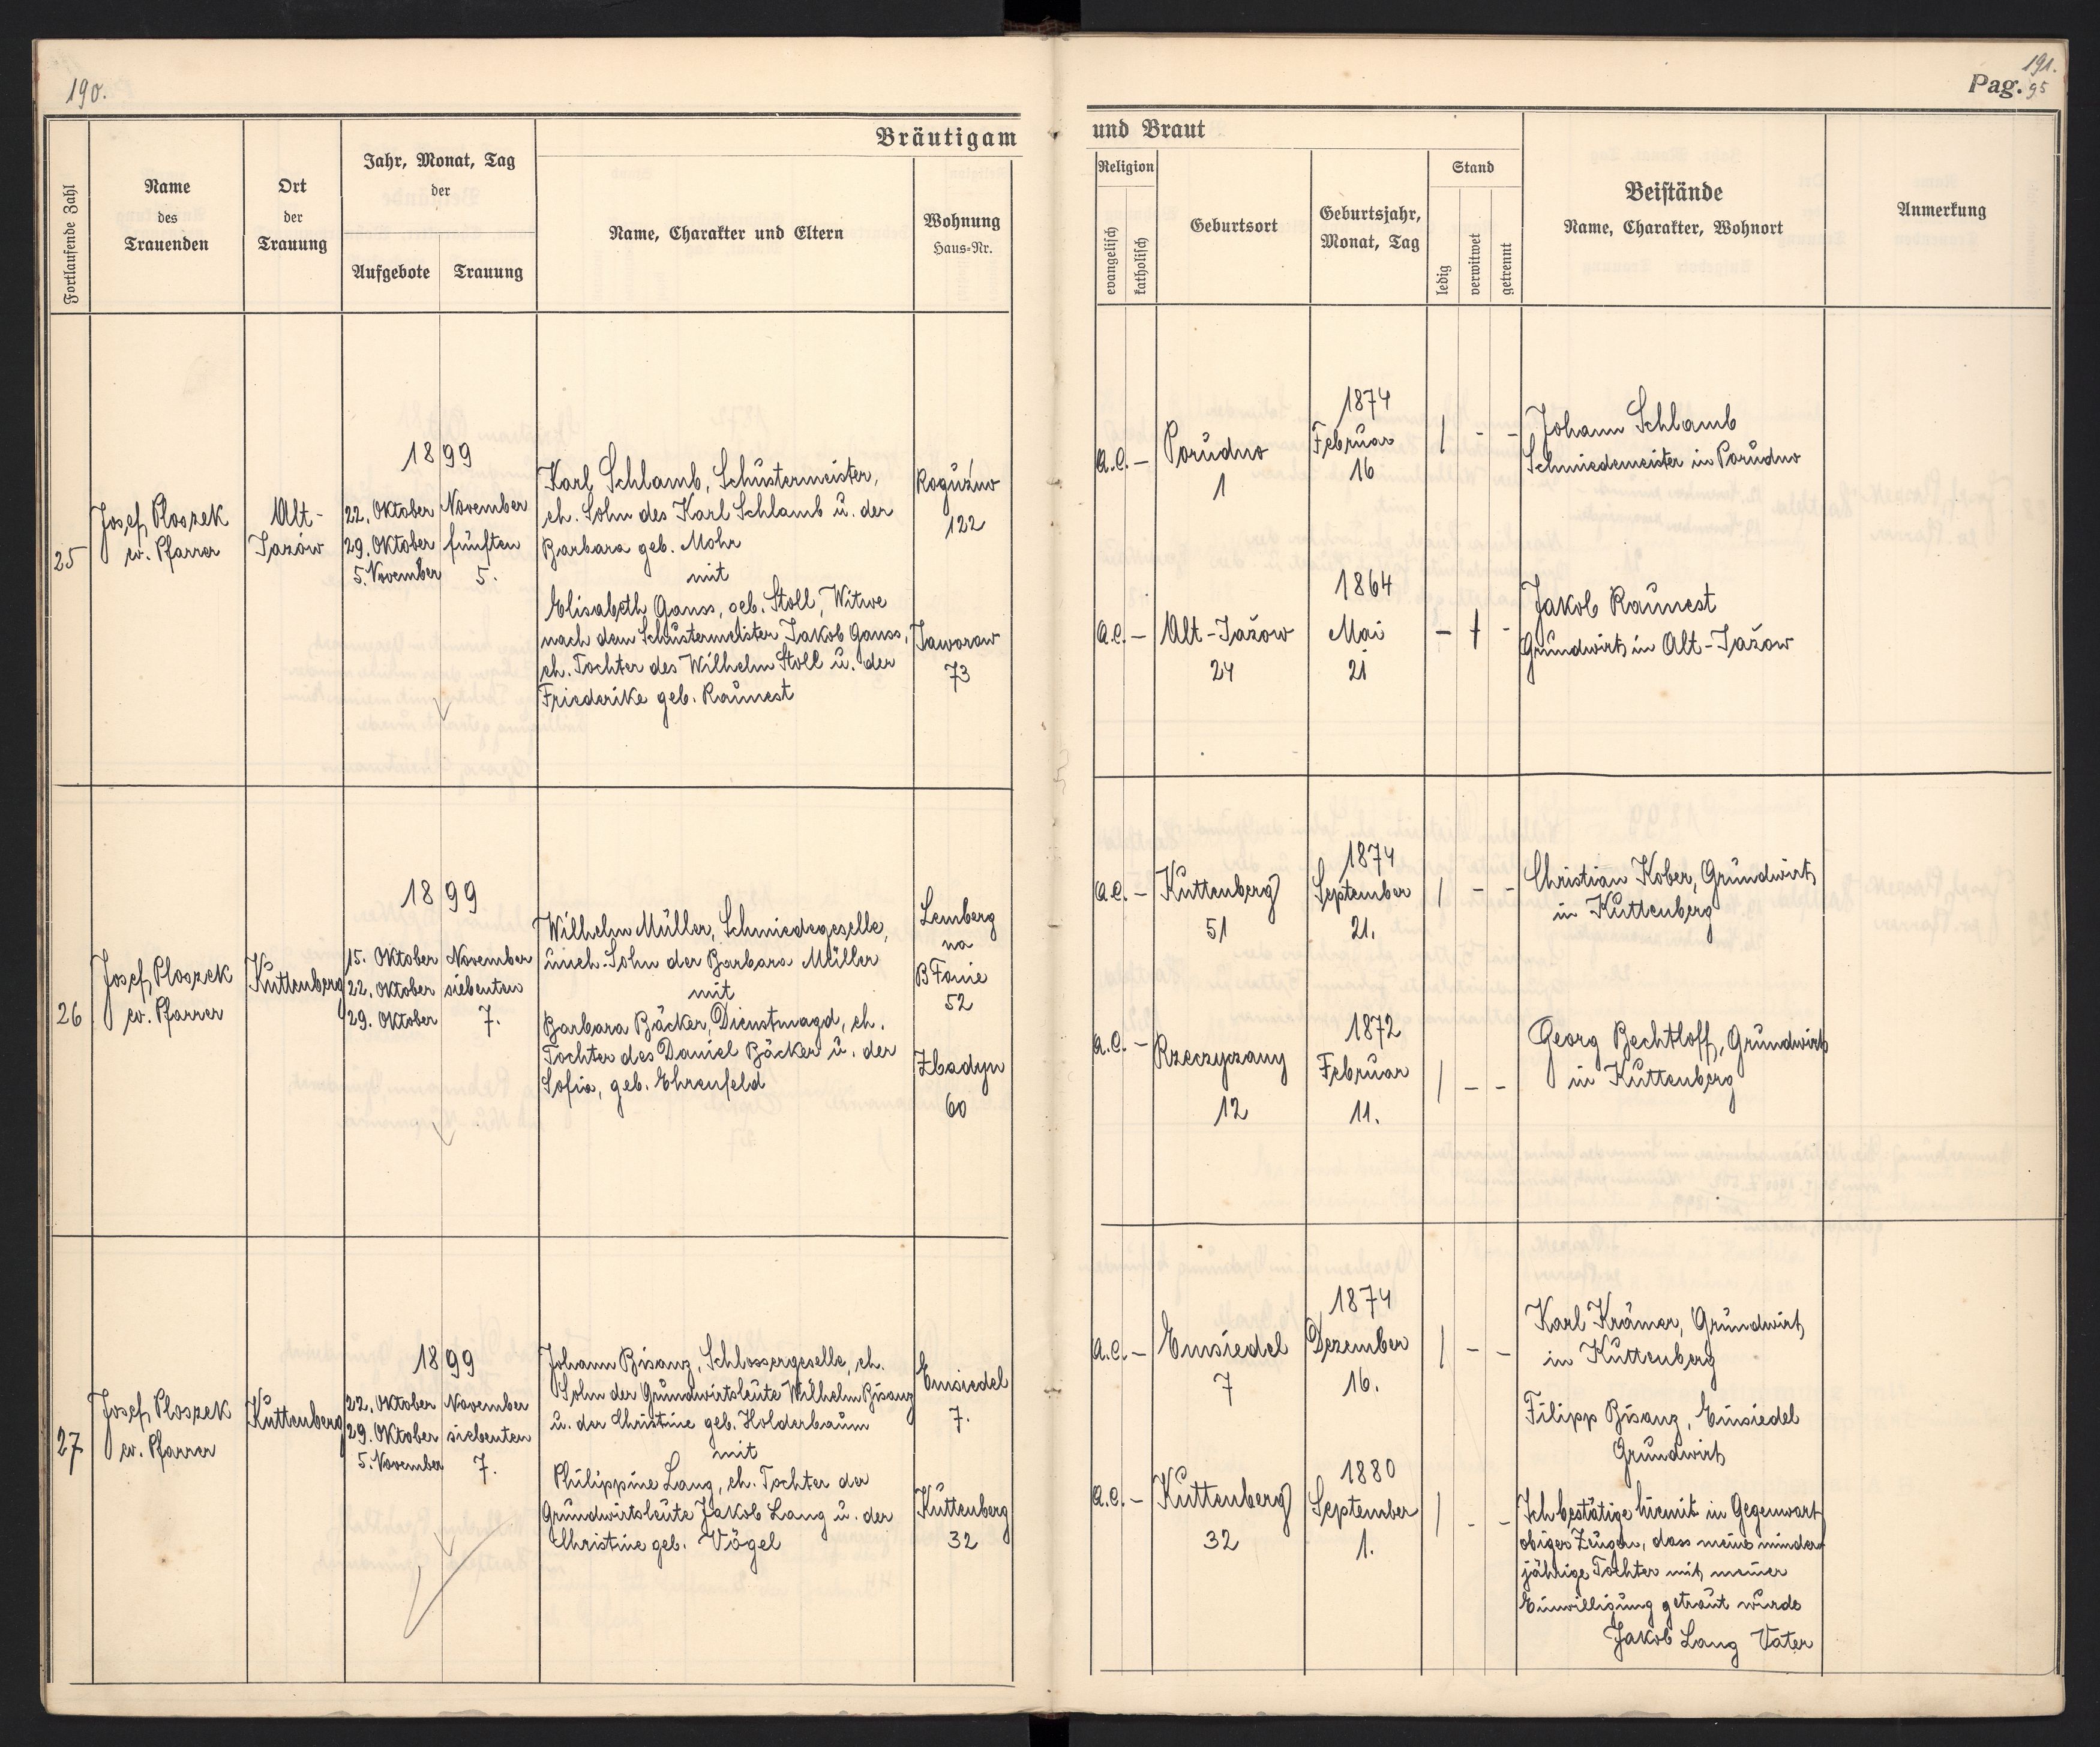 190.
191.
Pag. 95
Bräutigam
und Braut
Fortlaufende Zahl
Name
des
Trauenden
Ort
der
Trauung
Jahr, Monat, Tag
der
Aufgebote
Trauung
Name, Charakter und Eltern
Wohnung
Haus-Nr.
Religion
evangelisch
katholisch
Geburtsort
Geburtsjahr,
Monat, Tag
Stand
ledig
verwitwet
getrennt
Beistände
Name, Charakter, Wohnort
Anmerkung
25
Josef Ploszek
ev. Pfarrer
Alt-
Jazów
1899
22. Oktober
29. Oktober
5. November
November
fünften
5.
Karl Schlamb, Schustermeister,
eh. Sohn des Karl Schlamb u. der
Barbara geb. Mohr
mit
Elisabeth Ganss, geb. Stoll, Witwe
nach dem Schustermeister Jakob Ganss,
eh. Tochter des Wilhelm Stoll u. der
Friederike geb. Raumest
Roguźno
122
Jaworow
73
a.c. –
Porudno
1
1874
Februar
16
/ - -
Johann Schlamb
Schmiedemeister in Porudno
a.c. –
Alt-Jażow
24
1864
Mai
21
– / -
Jakob Raumest
Grundwirt in Alt-Jażow
26
Josef Ploszek
ev. Pfarrer
Kuttenberg
1899
15. Oktober
22. Oktober
29. Oktober
November
siebenten
7.
Wilhelm Müller, Schmiedegeselle,
uneh. Sohn der Barbara Müller
mit
Barbara Bäcker, Dienstmagd, eh.
Tochter des Daniel Bäcker u. der
Sofia, geb. Ehrenfeld
Lemberg
na
Błonie
52
Zbadyn
60
a.c. –
Kuttenberg
51
1874
September
21.
/ - -
Christian Kober, Grundwirt
in Kuttenberg
a.c. –
Rzeczyczany
12
1872
Februar
11.
/ - -
Georg Bechtloff, Grundwirt
in Kuttenberg
27
Josef Ploszek
ev. Pfarrer
Kuttenberg
1899
22. Oktober
29. Oktober
5. November
November
siebenten
7.
Johann Bisanz, Schlossergeselle, eh.
Sohn der Grundwirtsleute Wilhelm Bisanz
u. der Christine geb. Holderbaum
mit
Philippine Lang, eh. Tochter der
Grundwirtsleute Jakob Lang u. der
Christine geb. Vögel
Einsiedel
7.
Kuttenberg
32
a.c. –
Einsiedel
7
1874
Dezember
16.
/ - -
Karl Krämer, Grundwirt
in Kuttenberg
Filipp Bisanz, Einsiedel
Grundwirt
a.c. –
Kuttenberg
32
1880
September
1.
/ - -
Ich bestätige hiemit in Gegenwart
obiger Zeugen, dass meine minder
jährige Tochter mit meiner
Einwilligung getraut wurde
Jakob Lang Vater